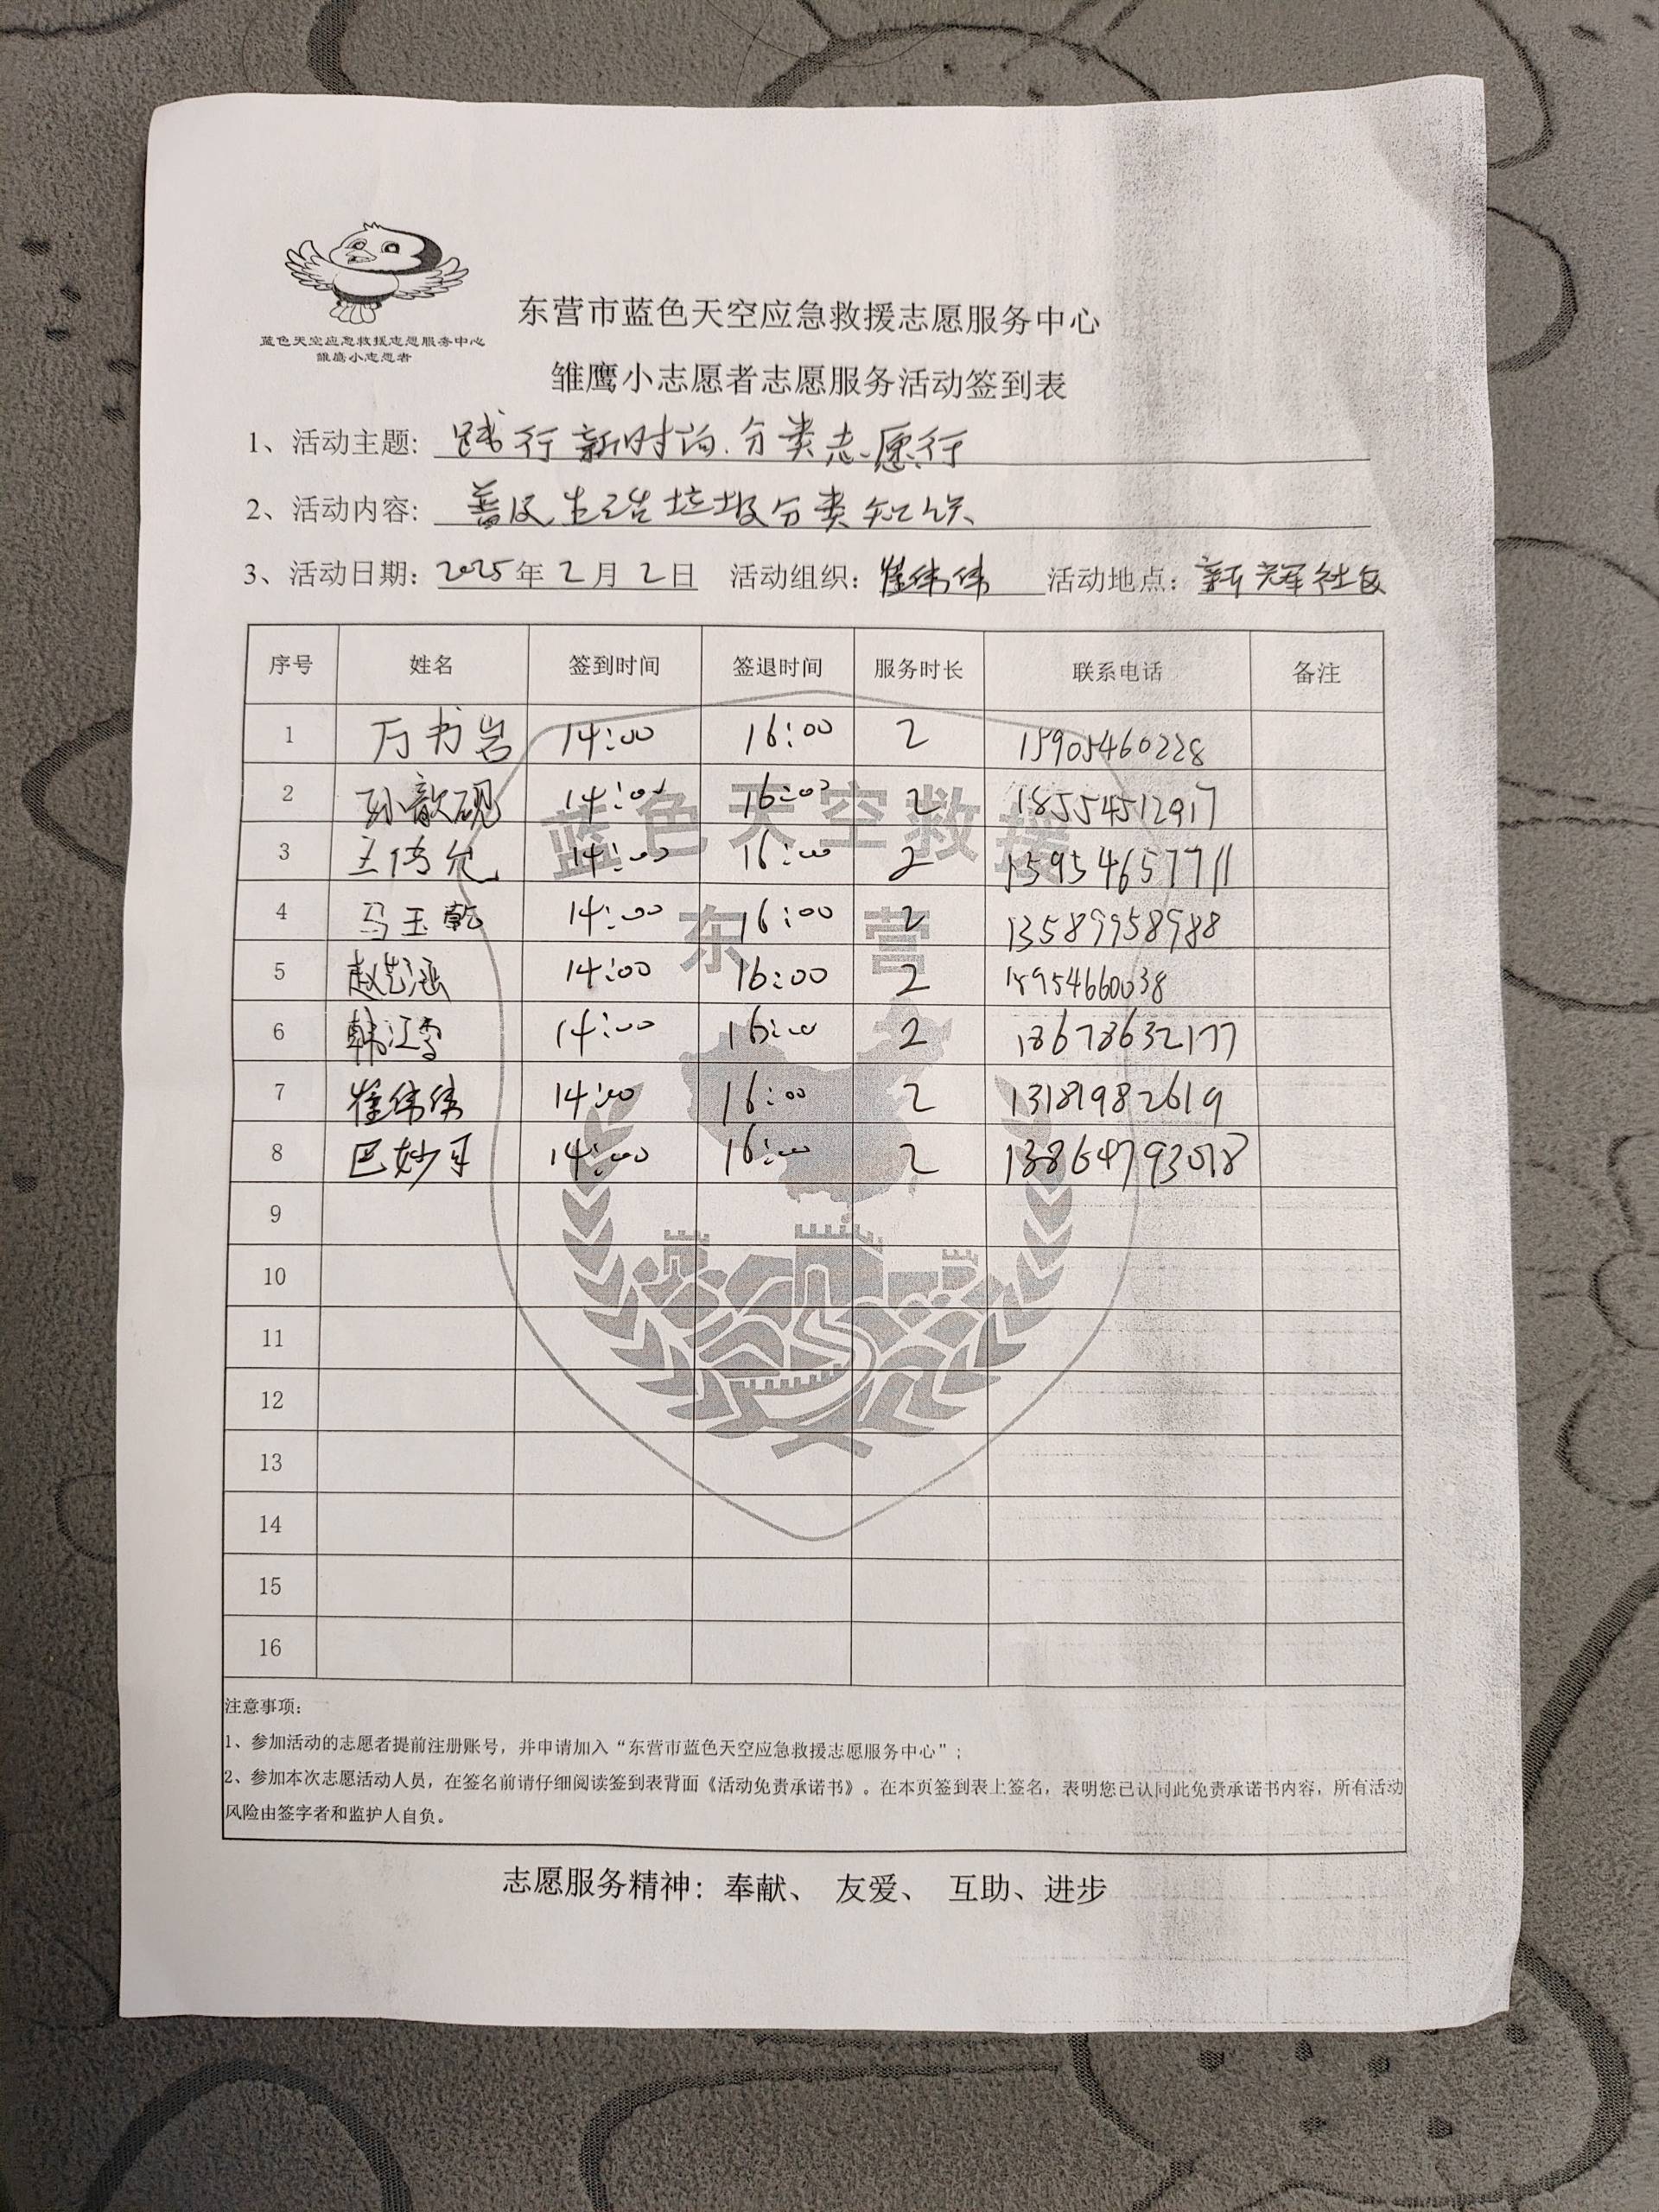 蓝色天空应急救援志愿服务中心
雏鹰小志愿者
东营市蓝色天空应急救援志愿服务中心
雏鹰小志愿者志愿服务活动签到表
1、活动主题: 践行新时尚.分类志愿行
2、活动内容: 普及生活垃圾分类知识
3、活动日期: 2025年2月2日 活动组织: 崔伟伟 活动地点: 新辉社区
序号 姓名 签到时间 签退时间 服务时长 联系电话 备注
1 万书岩 14:00 16:00 2 15905460228
2 孙歆砚 14:00 16:00 2 18554512917
3 王传允 14:00 16:00 2 13954657711
4 马玉乾 14:00 16:00 2 13589958988
5 赵艺涵 14:00 16:00 2 18954660038
6 韩江雪 14:00 16:00 2 18678632177
7 崔伟伟 14:00 16:00 2 13181982619
8 巴妙 14:00 16:00 2
9
10
11
12
13
14
15
16
蓝色天空救援
东营
注意事项:
1、参加活动的志愿者提前注册账号，并申请加入“东营市蓝色天空应急救援志愿服务中心”；
2、参加本次志愿活动人员，在签名前请仔细阅读签到表背面《活动免责承诺书》。在本页签到表上签名，表明您已认同此免责承诺书内容，所有活动
风险由签字者和监护人自负。
志愿服务精神: 奉献、 友爱、 互助、进步